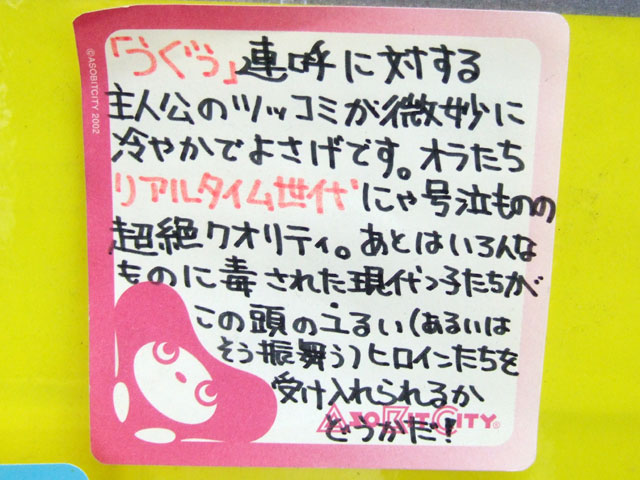 ©ASOBITCITY 2002
「うぐぅ」連呼に対する
主人公のツッコミが微妙に
冷やかでよさげです。オラたち
リアルタイム世代にゃ号泣ものの
超絶クオリティ。あとはいろんな
ものに毒された現代っ子たちが
この頭のユるい(あるいは
そう振舞う)ヒロインたちを
受け入れられるか
どうかだ!
ASOBITCITY®